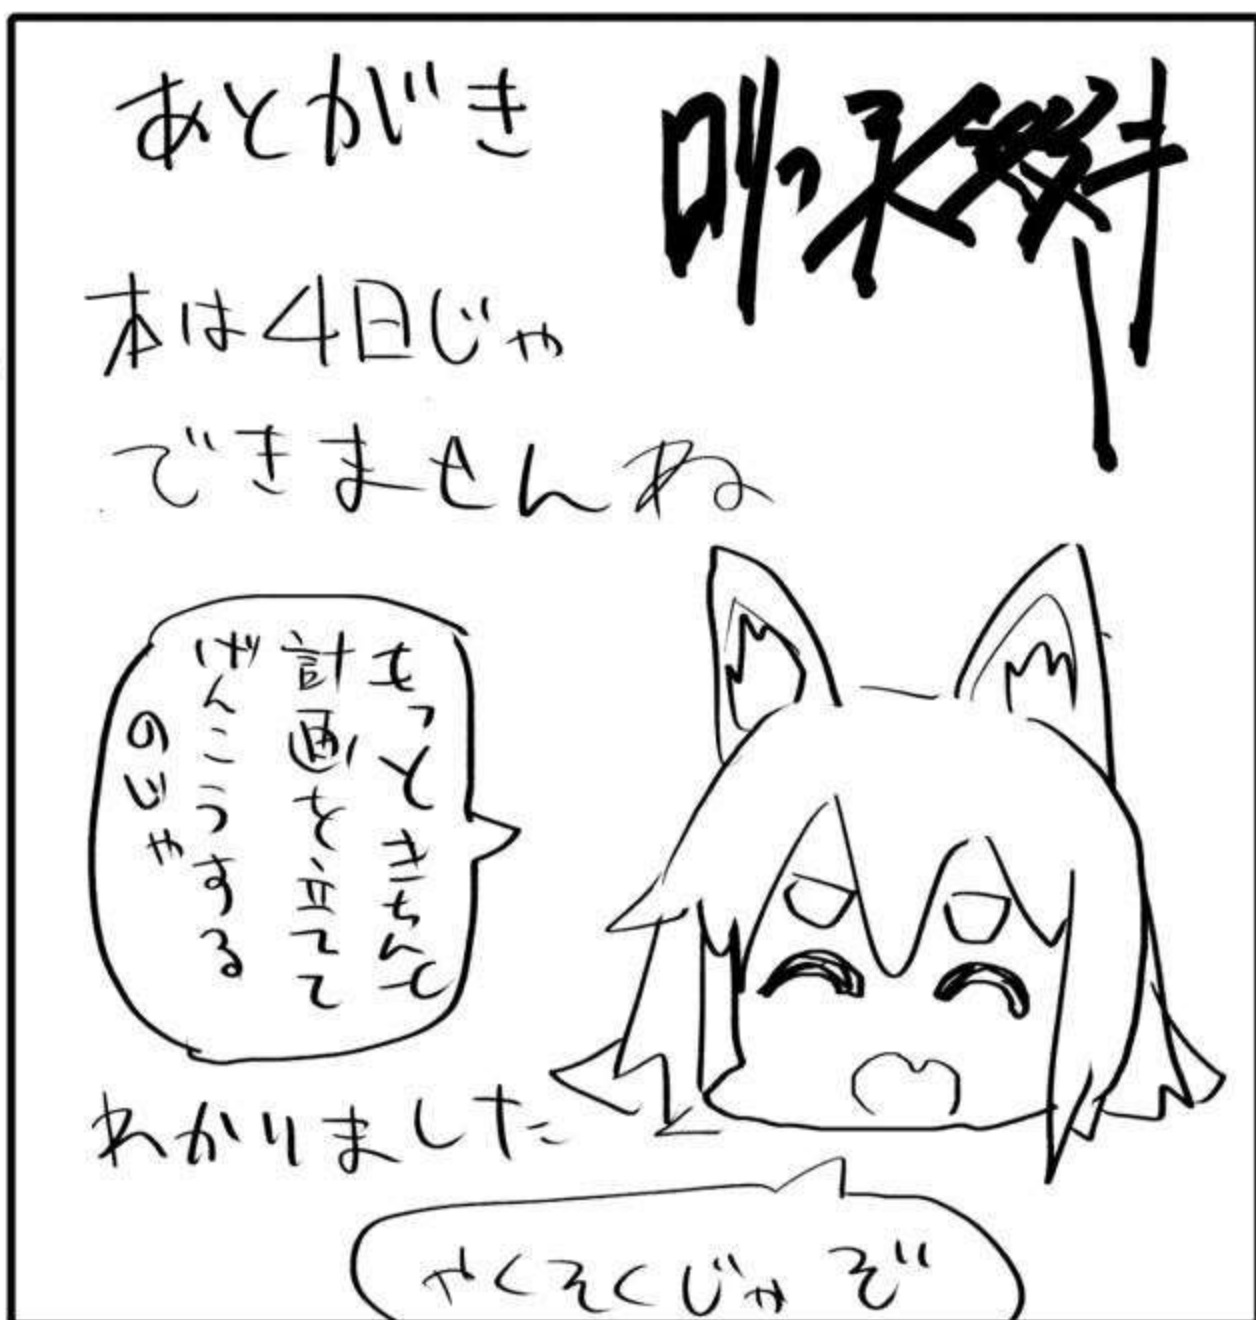 あとがき
本は4日じゃ
できませんね
もっときちんと
計画を立てて
げんこうする
のじゃ
わかりました
やくそくじゃぞ